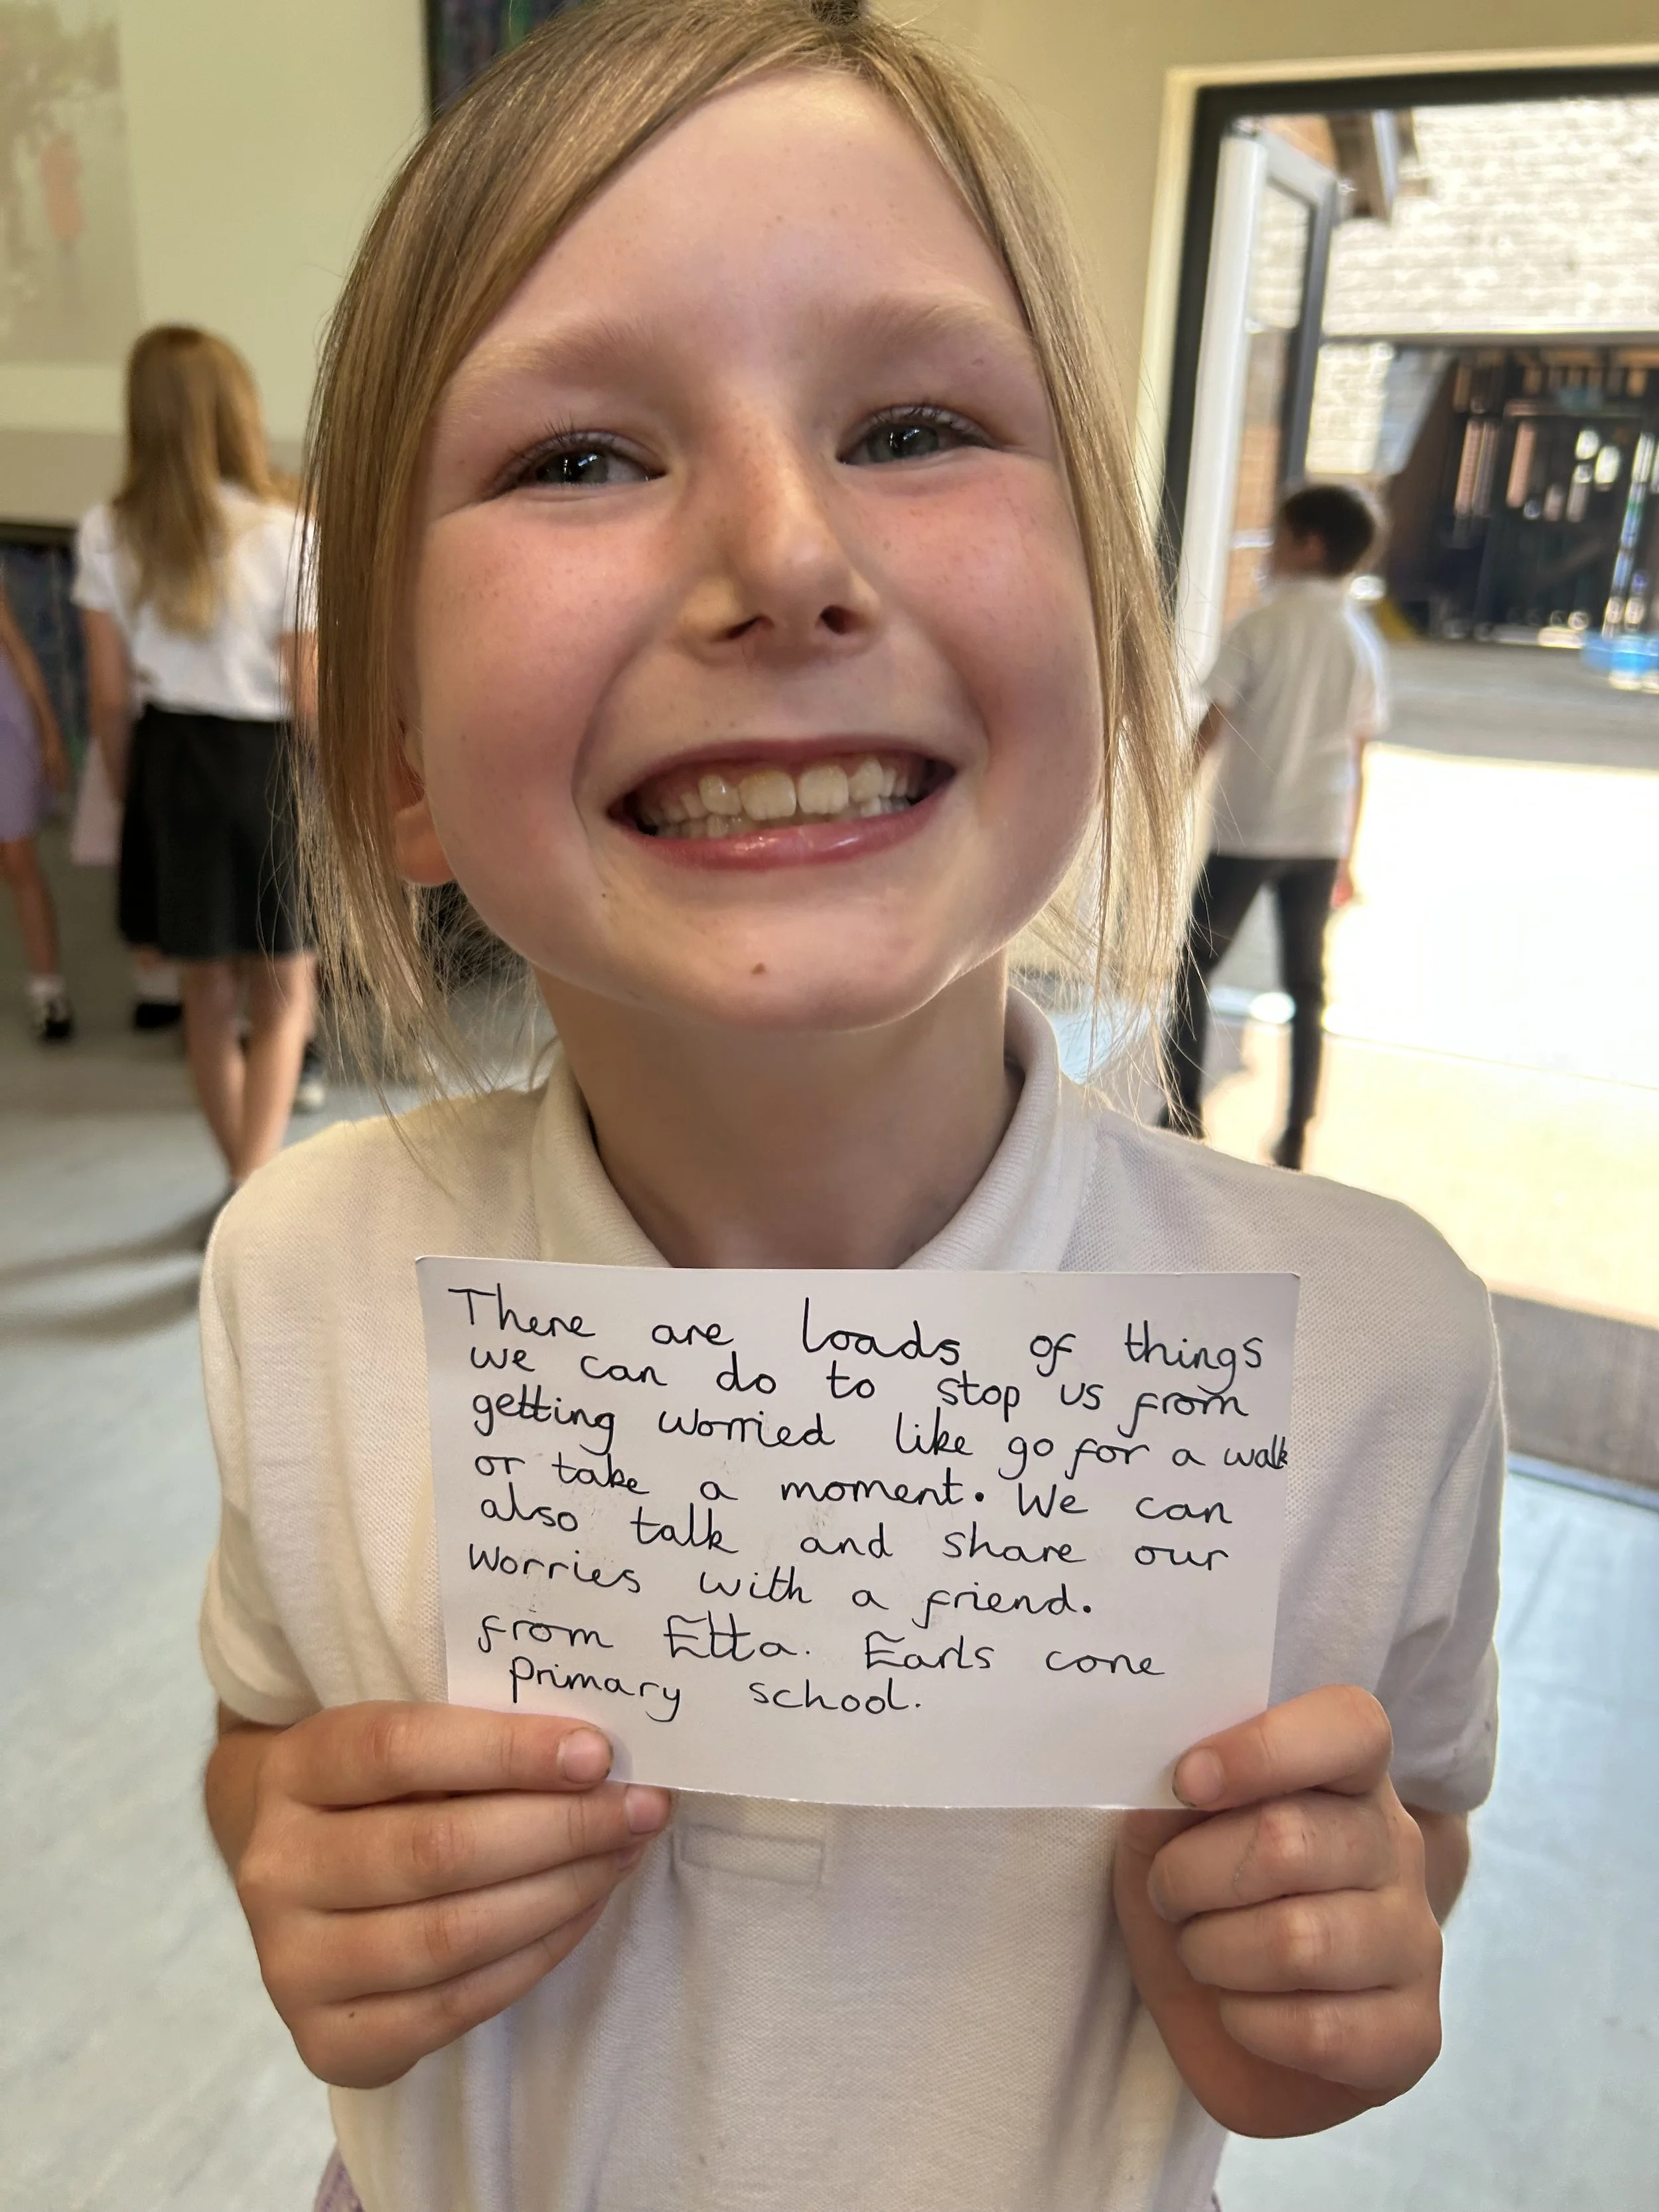 There are loads of things
we can do to stop us from
getting worried like go for a walk
or take a moment. We can
also talk and share our
Worries with a friend.
from Etta. Earls cone
Primary school.